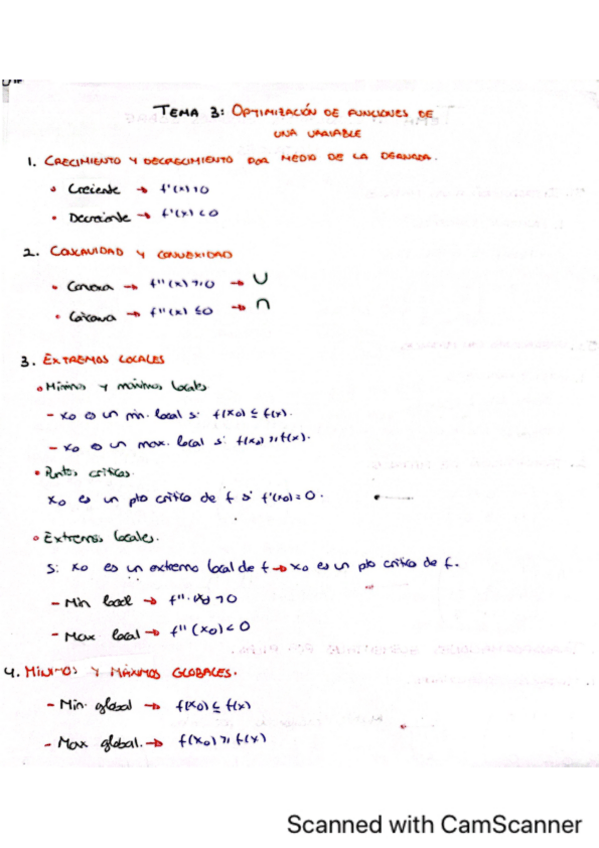 TEMA 3: OPTIMIZACIÓN DE FUNCIONES DE
UNA VARIABLE
1. CRECIMIENTO Y DECRECIMIENTO POR MEDIO DE LA DERIVADA.
• Creciente → f'(x) > 0
• Decreciente → f'(x) < 0
2. CONCAVIDAD Y CONVEXIDAD
• Convexa → f''(x) ≥ 0 → ∪
• Cóncava → f''(x) ≤ 0 → ∩
3. EXTREMOS LOCALES
• Mínimos y máximos locales
- x₀ es un min. local si f(x₀) ≤ f(x).
- x₀ es un max. local si f(x₀) ≥ f(x).
• Puntos críticos.
x₀ es un pto crítico de f si f'(x₀) = 0.
• Extremos locales.
Si x₀ es un extremo local de f → x₀ es un pto crítico de f.
- Min local → f''(x₀) > 0
- Max local → f''(x₀) < 0
4. MÍNIMOS Y MÁXIMOS GLOBALES.
- Min. global → f(x₀) ≤ f(x)
- Max global. → f(x₀) ≥ f(x)
Scanned with CamScanner